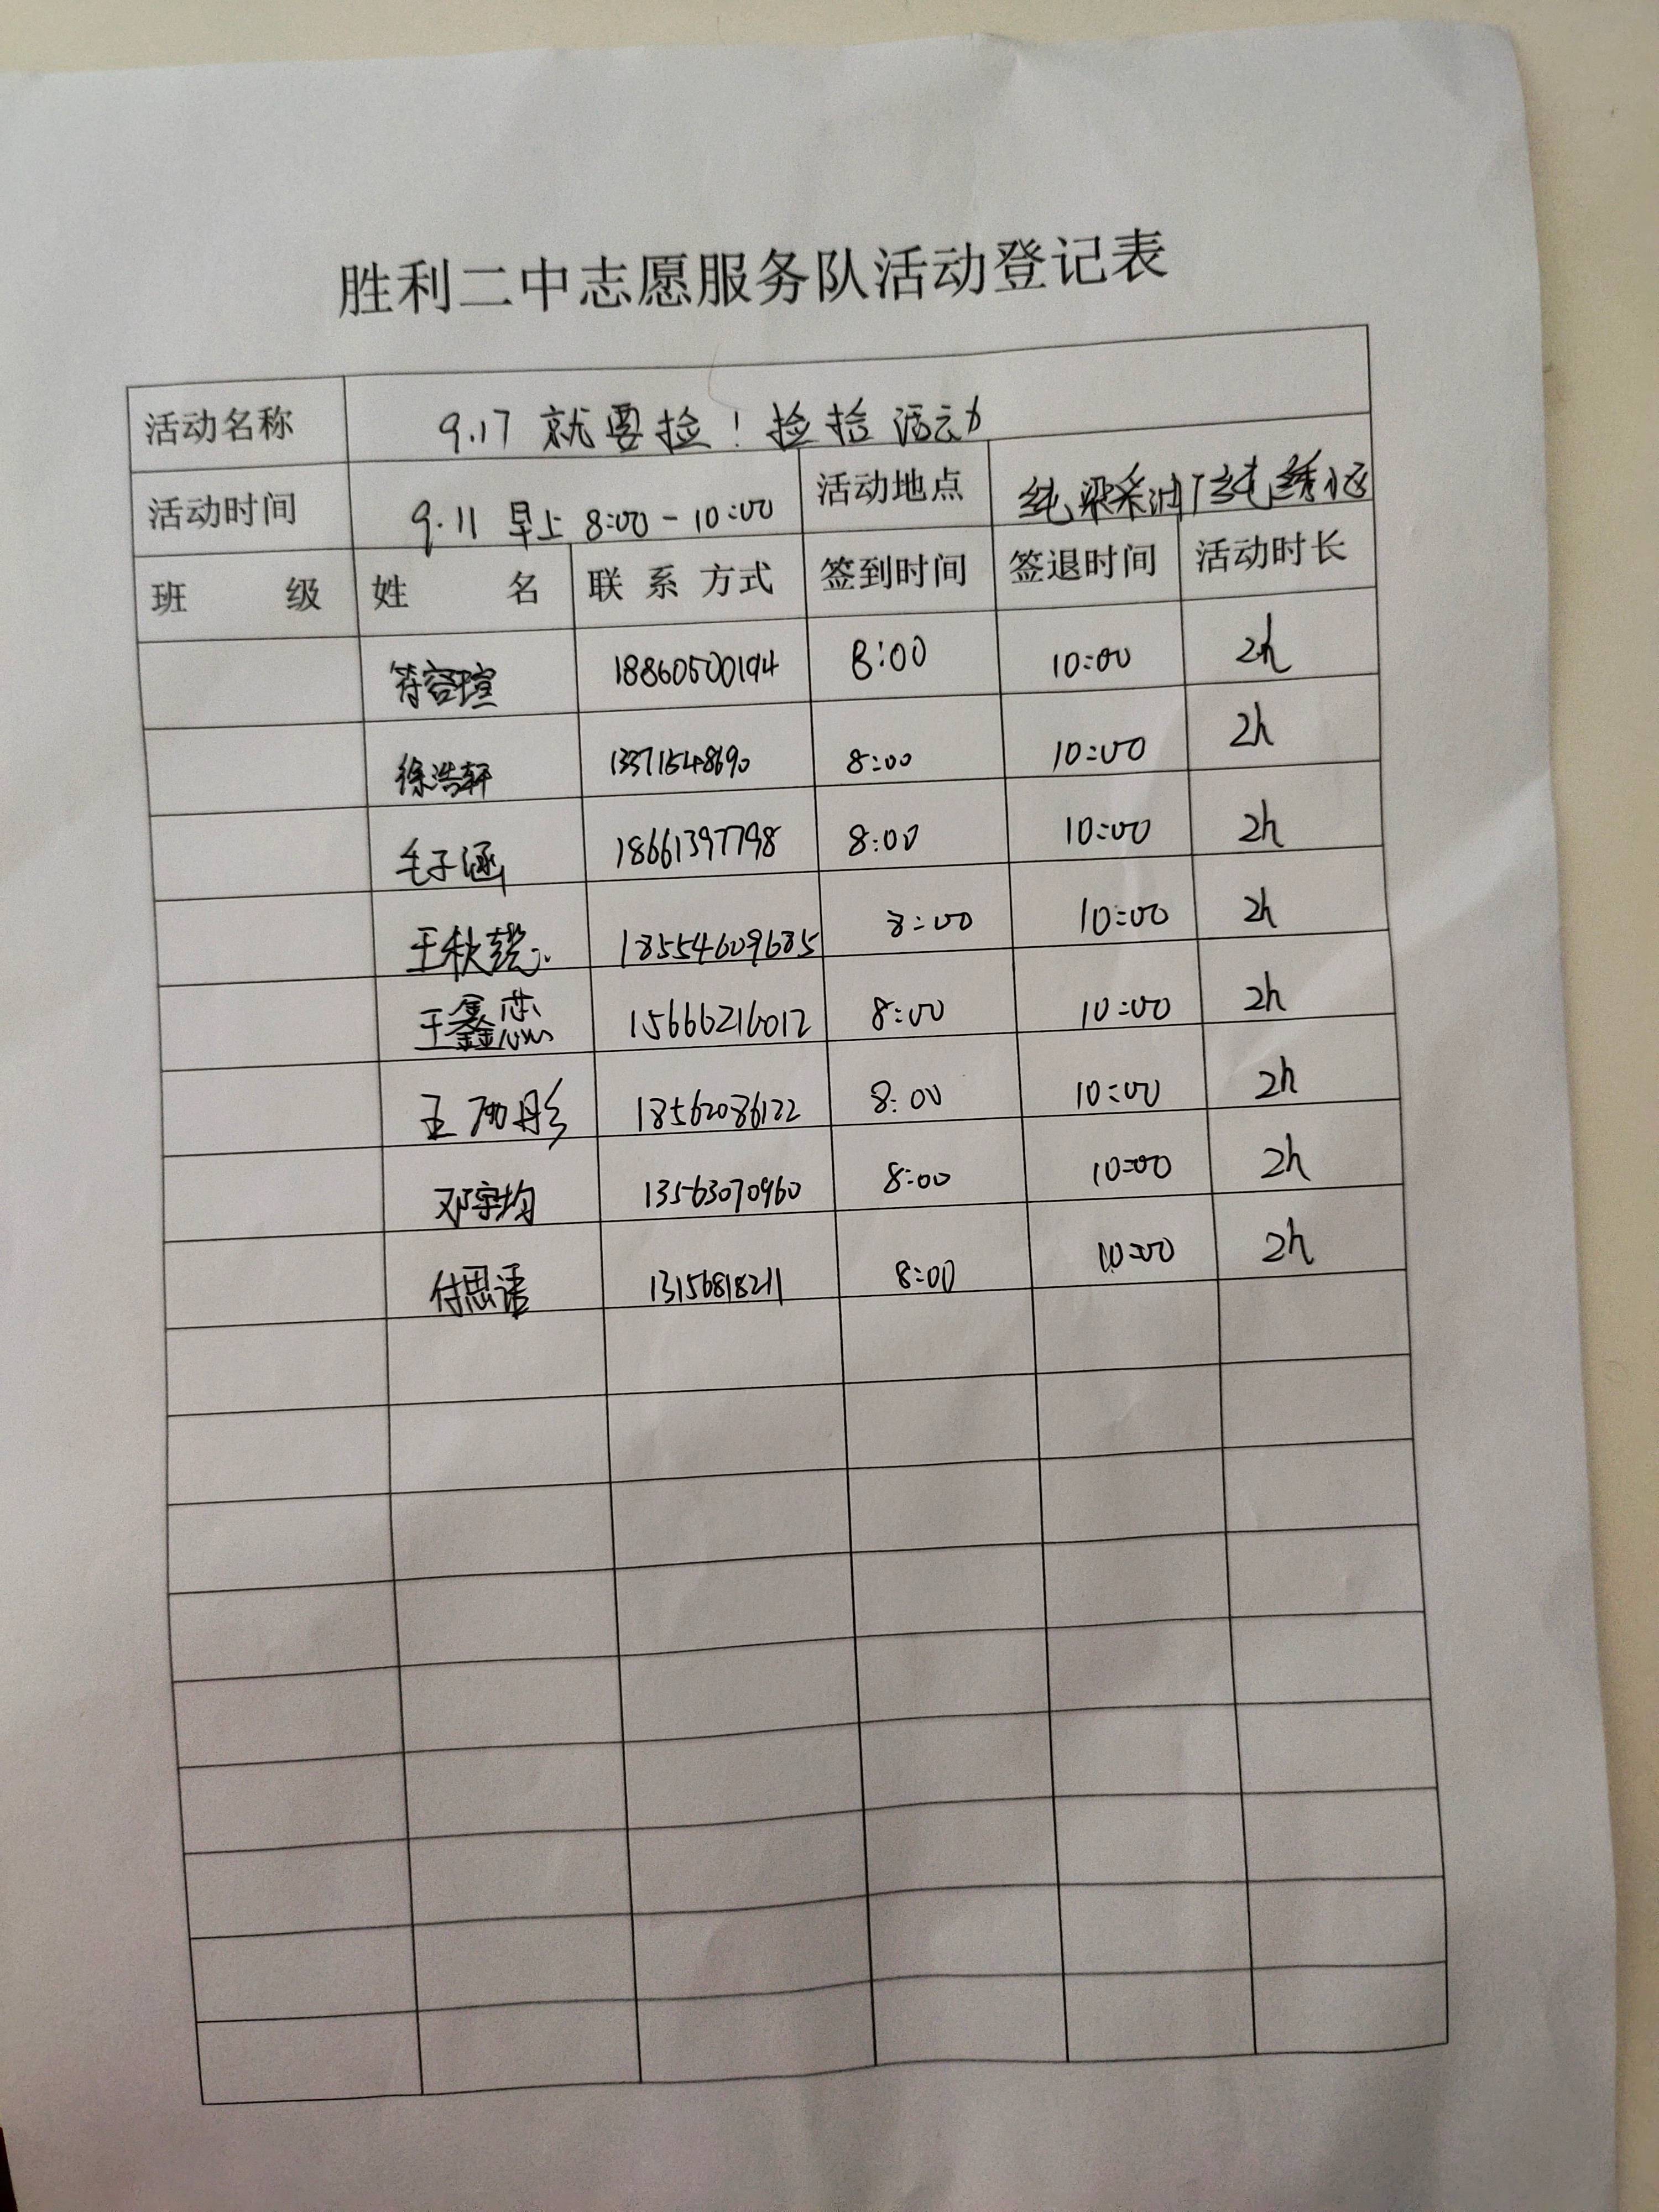 胜利二中志愿服务队活动登记表
活动名称 9.17 就要捡！捡拾活动
活动时间 9.11 早上 8:00-10:00 活动地点 纯梁采油厂纯绣小区
班 级 姓 名 联 系 方式 签到时间 签退时间 活动时长
符容瑄 18860500194 8:00 10:00 2h
徐浩轩 13371548690 8:00 10:00 2h
毛子涵 18661397798 8:00 10:00 2h
王秋 18554609685 8:00 10:00 2h
王鑫蕊 15666216012 8:00 10:00 2h
王 彤 18562086122 8:00 10:00 2h
邓宇均 13563070960 8:00 10:00 2h
付思语 13156818211 8:00 10:00 2h